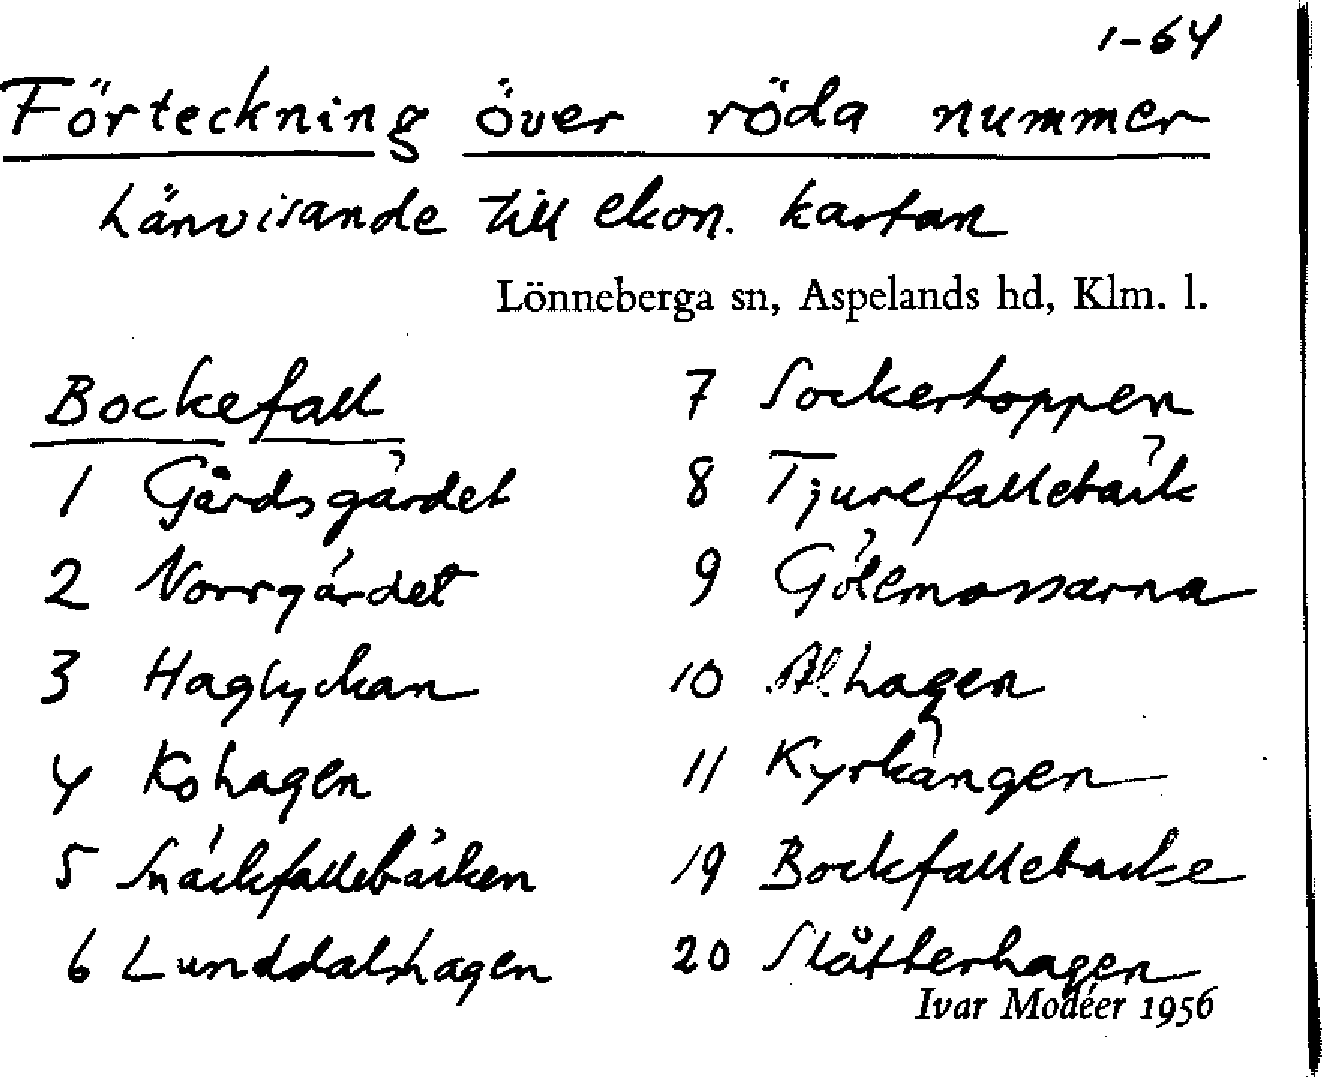 1-64
Förteckning över röda nummer
hänvisande till ekon. kartan
Lönneberga sn, Aspelands hd, Klm. l.
Bockefall
1 Gårdsgärdet
2 Norrgärdet
3 Haglyckan
4 Kohagen
5 Snäckfallebäcken
6 Lunddalshagen
7 Sockertoppen
8 Tjurefallebäck
9 Gölemossarna
10 Alhagen
11 Kyrkängen
19 Bockfallebacke
20 Slåtterhagen
Ivar Modéer 1956